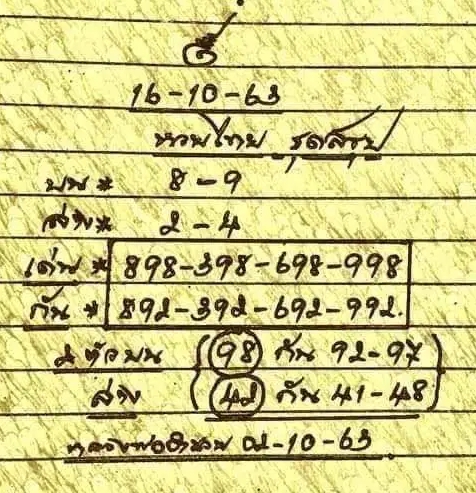 16-10-63
หวยไทย ชุดสรุป
บน * 8-9
ล่าง * 2-4
เด่น * 898-398-698-998
กัน * 892-392-692-992.
2 ตัวบน 98 กัน 92-97
ล่าง 42 กัน 41-48
02-10-63